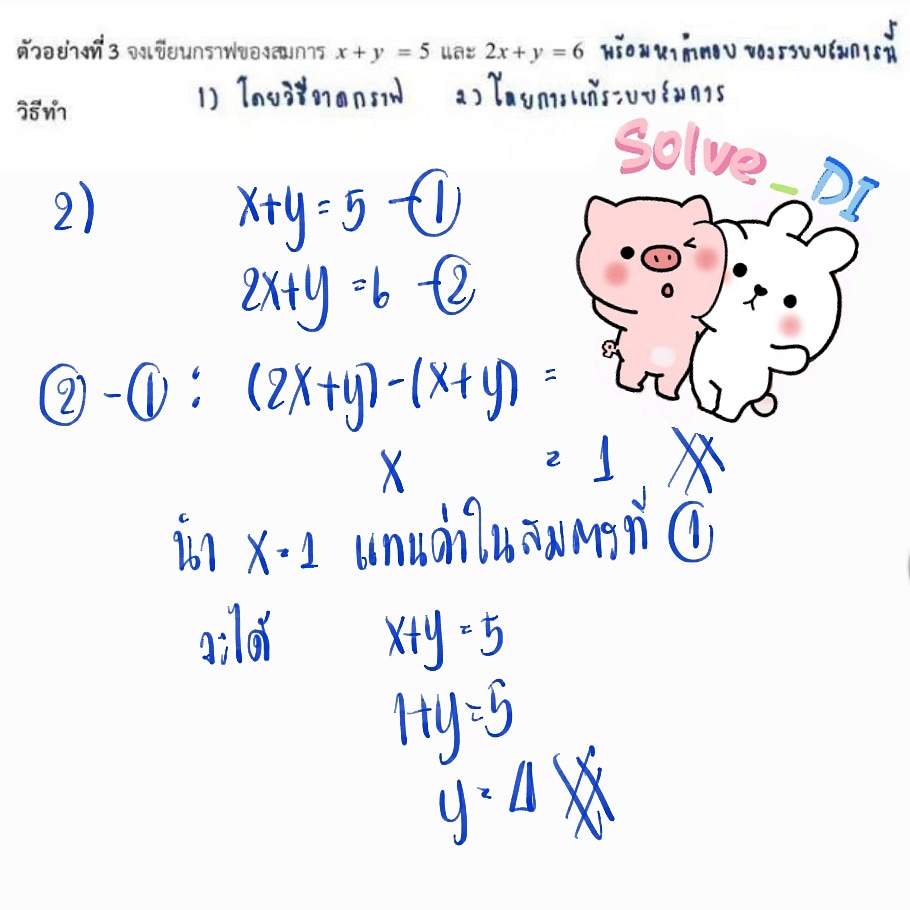 ตัวอย่างที่ 3 จงเขียนกราฟของสมการ x + y = 5 และ 2x + y = 6 พร้อมหาคำตอบ ของระบบสมการนี้
วิธีทำ 1) โดยวิธีวาดกราฟ 2) โดยการแก้ระบบสมการ
Solve_DI
2) x+y = 5 -①
2x+y = 6 -②
② - ① : (2x+y)-(x+y) =
x = 1
นำ x = 1 แทนค่าในสมการที่ ①
จะได้ x+y = 5
1+y = 5
y = 4